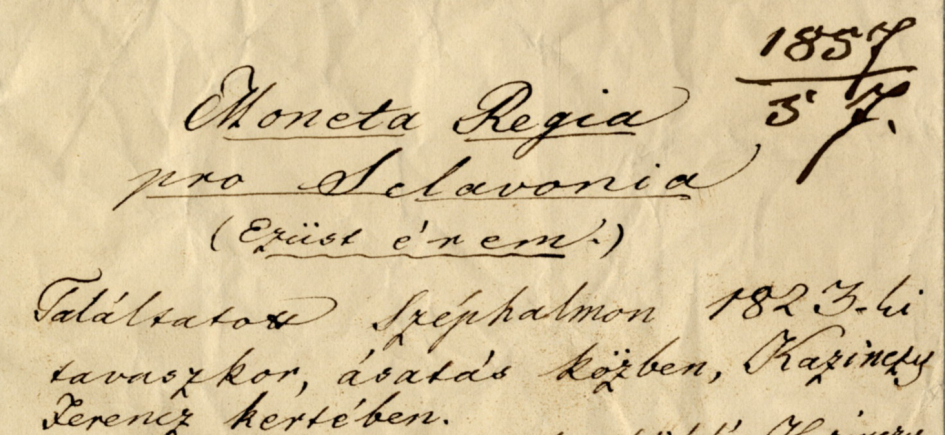 1857
57.
Moneta Regia
pro Sclavonia
(Ezüst érem.)
Találtatott Széphalmon 1823-ki
tavaszkor, ásatás közben, Kazinczy
Ferencz kertében.